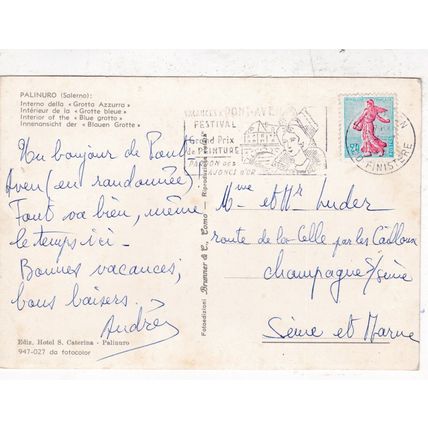 PALINURO (Salerno):
Interno della «Grotta Azzurra»
Intérieur de la «Grotte bleue»
Interior of the «Blue grotto»
Innenansicht der «Blauen Grotte»
VACANCES A PONT-AVEN
FESTIVAL
Grand Prix
de PEINTURE
PARDON DES
AJONCS D'OR
FINISTERE
Un bonjour de Pont
Aven (en randonnée).
Tout va bien, même
le temps ici -
Bonnes vacances,
bons baisers.
Andrée
Mme et Mr Luder
route de la Celle par les Cailloux
Champagne s/Seine
Seine et Marne
Fotoedizioni Brunner & C., Como - Riproduzione vietata
Ediz. Hotel S. Caterina - Palinuro
947-027 da fotocolor